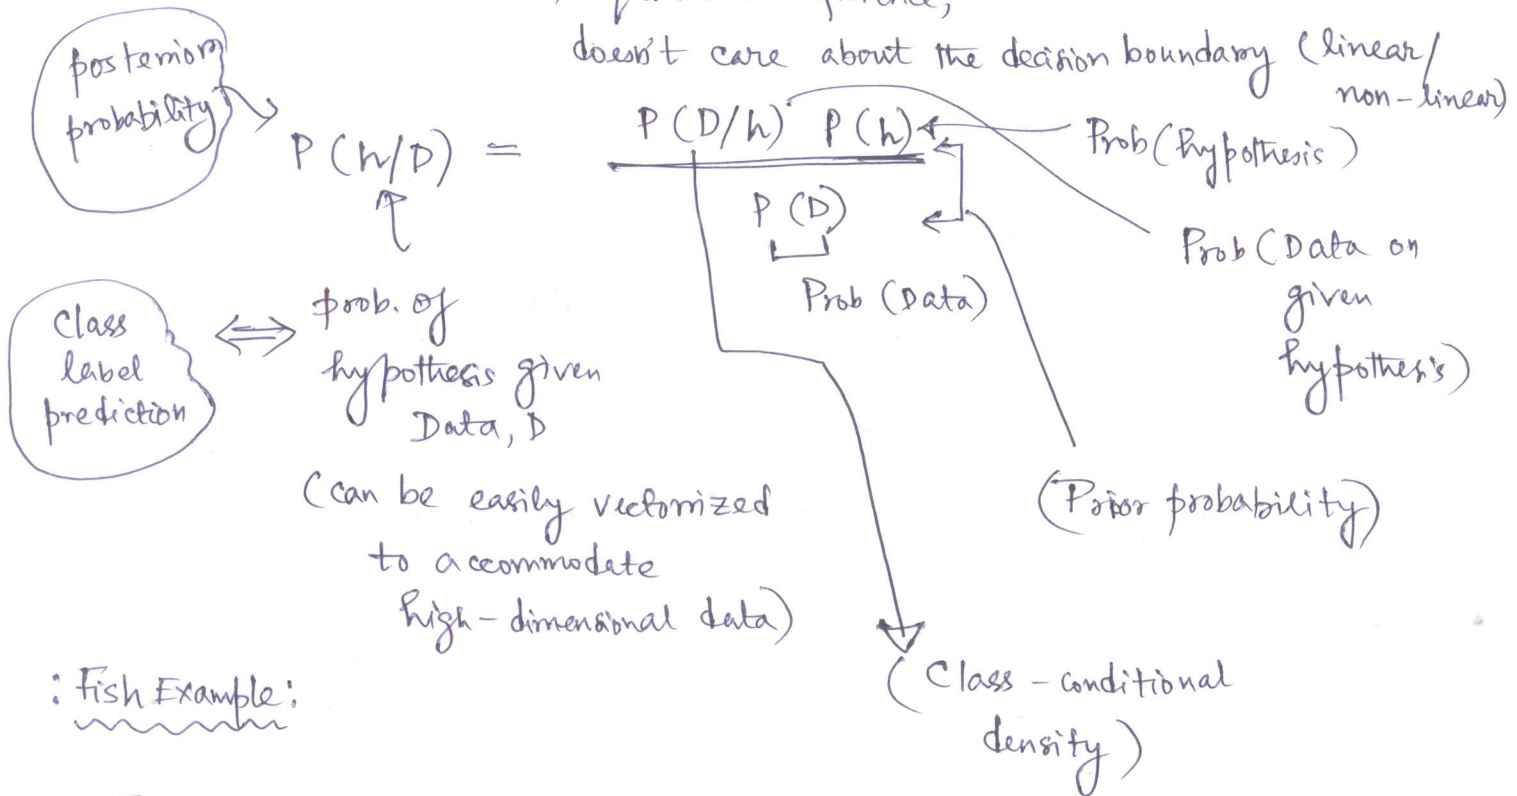 doesn't care about the decision boundary (linear/
non-linear)
posterior
probability
P(h/D) =
P(D/h) P(h)
P(D)
Prob(hypothesis)
Prob(Data on
given
hypothesis)
Prob (Data)
Class
label
prediction
prob. of
hypothesis given
Data, D
(can be easily vectorized
to accommodate
high-dimensional data)
(Prior probability)
(Class-conditional
density)
: Fish Example: